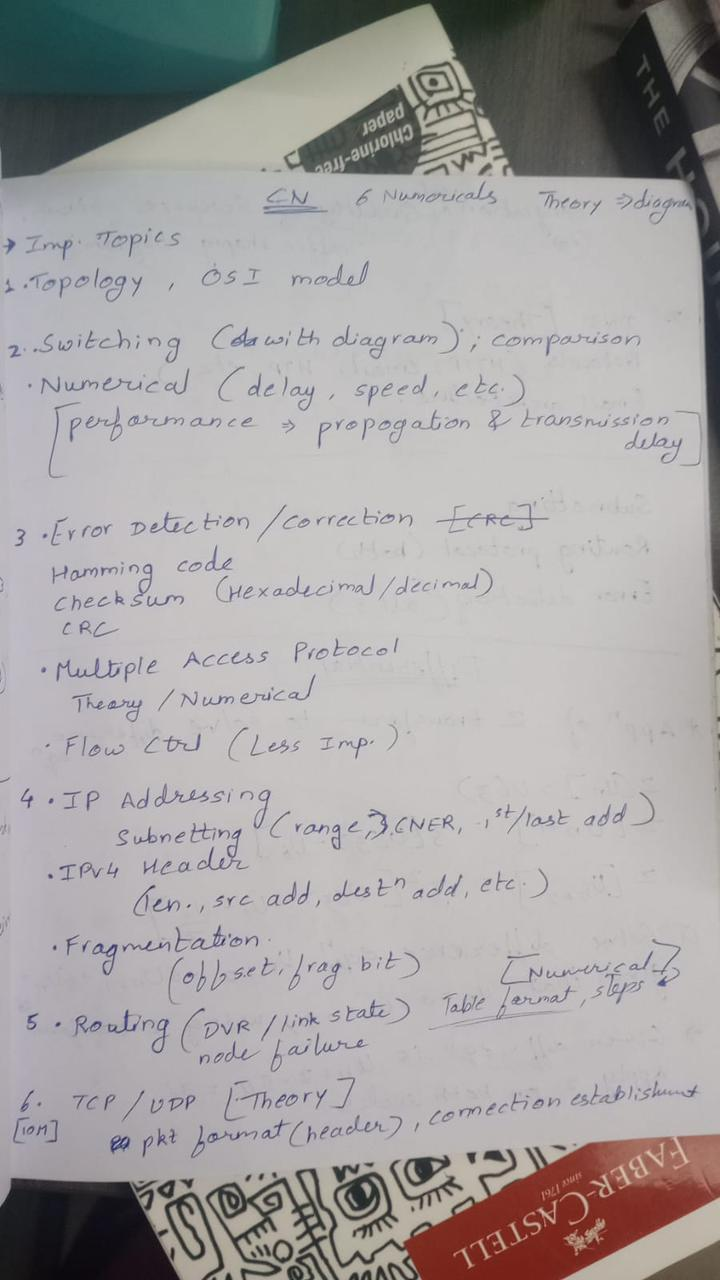 Chlorine-free
paper
THE HO
CN 6 Numericals Theory ⇒ diagram
→ Imp. Topics
1. Topology, OSI model
2. Switching (with diagram); comparison
• Numerical (delay, speed, etc.)
[performance ⇒ propogation & transmission
delay]
3 • Error Detection / correction [CRC]
Hamming code
Checksum (Hexadecimal/decimal)
CRC
• Multiple Access Protocol
Theory / Numerical
• Flow Ctrl (Less Imp.)
4 • IP Addressing
Subnetting (range, 1st/last add)
• IPv4 Header
(len., src add, destn add, etc.)
• Fragmentation
(offset, frag. bit) [Numerical]
5 • Routing (DVR / link state) Table format, steps
node failure
6. TCP / UDP [Theory]
[10M] pkt format (header), connection establishment
FABER-CASTELL
since 1761